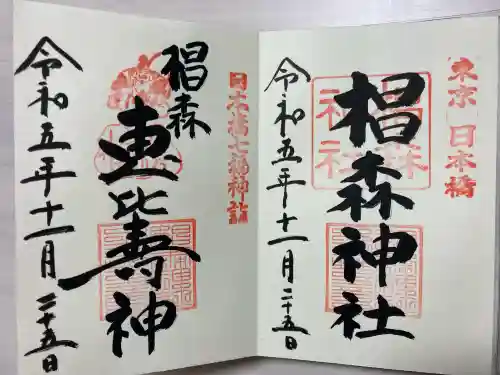 東京 日本橋
椙森神社
椙森
神社
令和五年十一月二十五日
日本橋七福神詣
椙森
恵比壽神
令和五年十一月二十五日